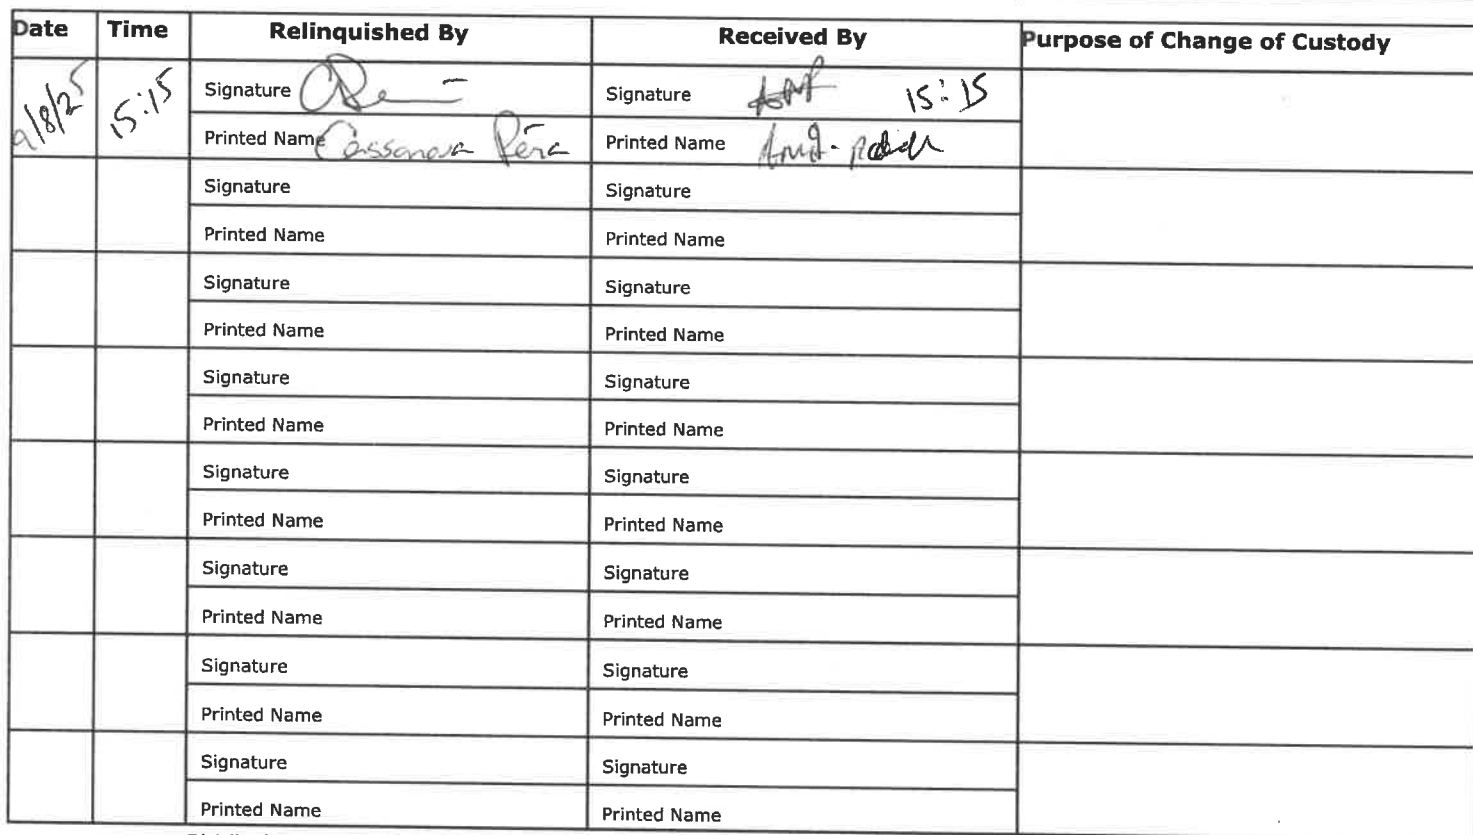 Date Time Relinquished By Received By Purpose of Change of Custody
9/8/25 15:15 Signature Signature 15:15
Printed Name Cassanova Peña Printed Name
Signature Signature
Printed Name Printed Name
Signature Signature
Printed Name Printed Name
Signature Signature
Printed Name Printed Name
Signature Signature
Printed Name Printed Name
Signature Signature
Printed Name Printed Name
Signature Signature
Printed Name Printed Name
Signature Signature
Printed Name Printed Name